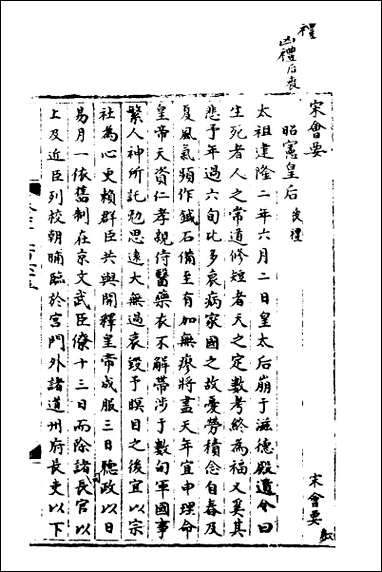 禮
凶禮后喪
宋會要
昭憲皇后喪禮
宋會要
太祖建隆二年六月二日皇太后崩于滋德殿遺令曰
生死者人之常道修短者天之定數考終為福又奚其
悲予年過六旬比多衰病家國之故憂勞積念自春及
夏風氣頻作鍼石備至有加無瘳將盡天年宜申理命
皇帝天資仁孝親侍醫藥衣不解帶涉于數旬軍國事
繁人神所託勉思遠大無過哀毀予瞑目之後宜以宗
社為心更賴群臣共與開釋皇帝成服三日聽政以日
易月一依舊制在京文武臣僚十三日而除諸長官以
上及近臣列校朝晡臨於宮門外諸道州府長吏以下